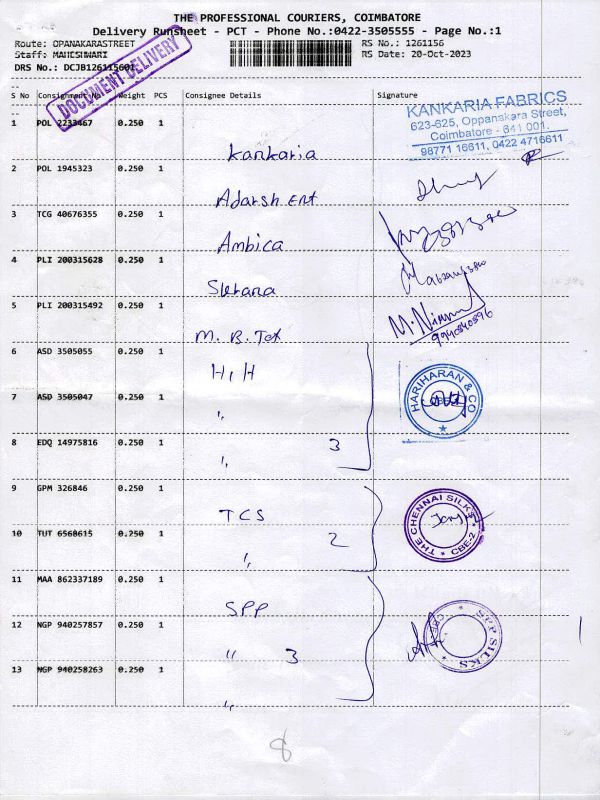 THE PROFESSIONAL COURIERS, COIMBATORE
Delivery Runsheet - PCT - Phone No.:0422-3505555 - Page No.:1
Route: OPANAKARASTREET
Staff: MAHESHWARI
DRS No.: DCJB126115601
RS No.: 1261156
RS Date: 20-Oct-2023
DOCUMENT DELIVERY
S No Consignment No Weight PCS Consignee Details Signature
KANKARIA FABRICS
623-625, Oppanakara Street,
Coimbatore - 641 001.
98771 16611, 0422 4716611
1 POL 2233467 0.250 1 Kankaria
2 POL 1945323 0.250 1 Adarsh Ent
3 TCG 40676355 0.250 1 Ambica
4 PLI 200315628 0.250 1
5 PLI 200315492 0.250 1 M. B. Tex
M. Nirmal
9940840896
6 ASD 3505055 0.250 1 H, H
7 ASD 3505047 0.250 1 "
8 EDQ 14975816 0.250 1 " 3
HARIHARAN & CO
9 GPM 326846 0.250 1 TCS
10 TUT 6568615 0.250 1 " 2
THE CHENNAI SILKS
CBE-2
11 MAA 862337189 0.250 1 SPP
12 NGP 940257857 0.250 1 " 3
13 NGP 940258263 0.250 1 "
SPP SILKS
8